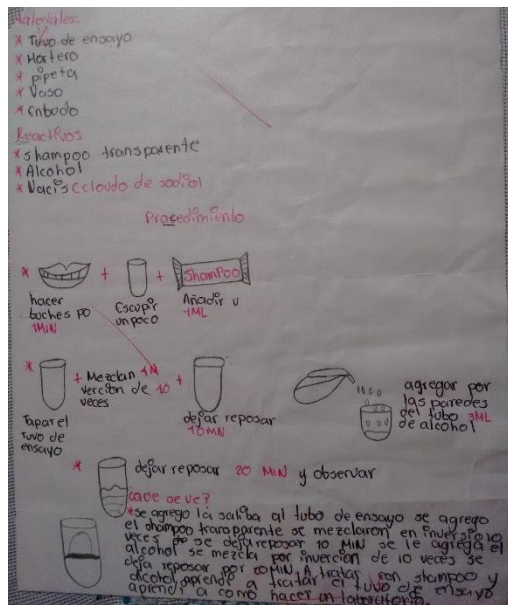 Materiales:
* Tuvo de ensayo
* Mortero
* pipeta
* Vaso
* Enbudo
Reactivos
* shampoo transparente
* Alcohol
* Nacis (cloudo de sodio)
Procedimiento
* + + Shampoo
hacer buches po 1MIN
Escupir un poco
Añadir u 1ML
* + Mezclan verción de 10 veces +
Tapar el tuvo de ensayo
dejar reposar 10MN
agregar por
las paredes
del tubo 3ML
de alcohol
* dejar reposar 20 MIN y observar
¿Que se ve?
*se agrego la saliba al tubo de ensayo se agrego
el shampoo transparente se mezclaron en inversio 10
veces de se deja reposar 10 MIN se le agrega el
alcohol se mezcla por inverción de 10 veces se
deja reposar por 20MIN. A tratar con shampoo y
alcohol aprendi a tratar el tuvo de ensayo
aprendi a como hacer un laboratorio